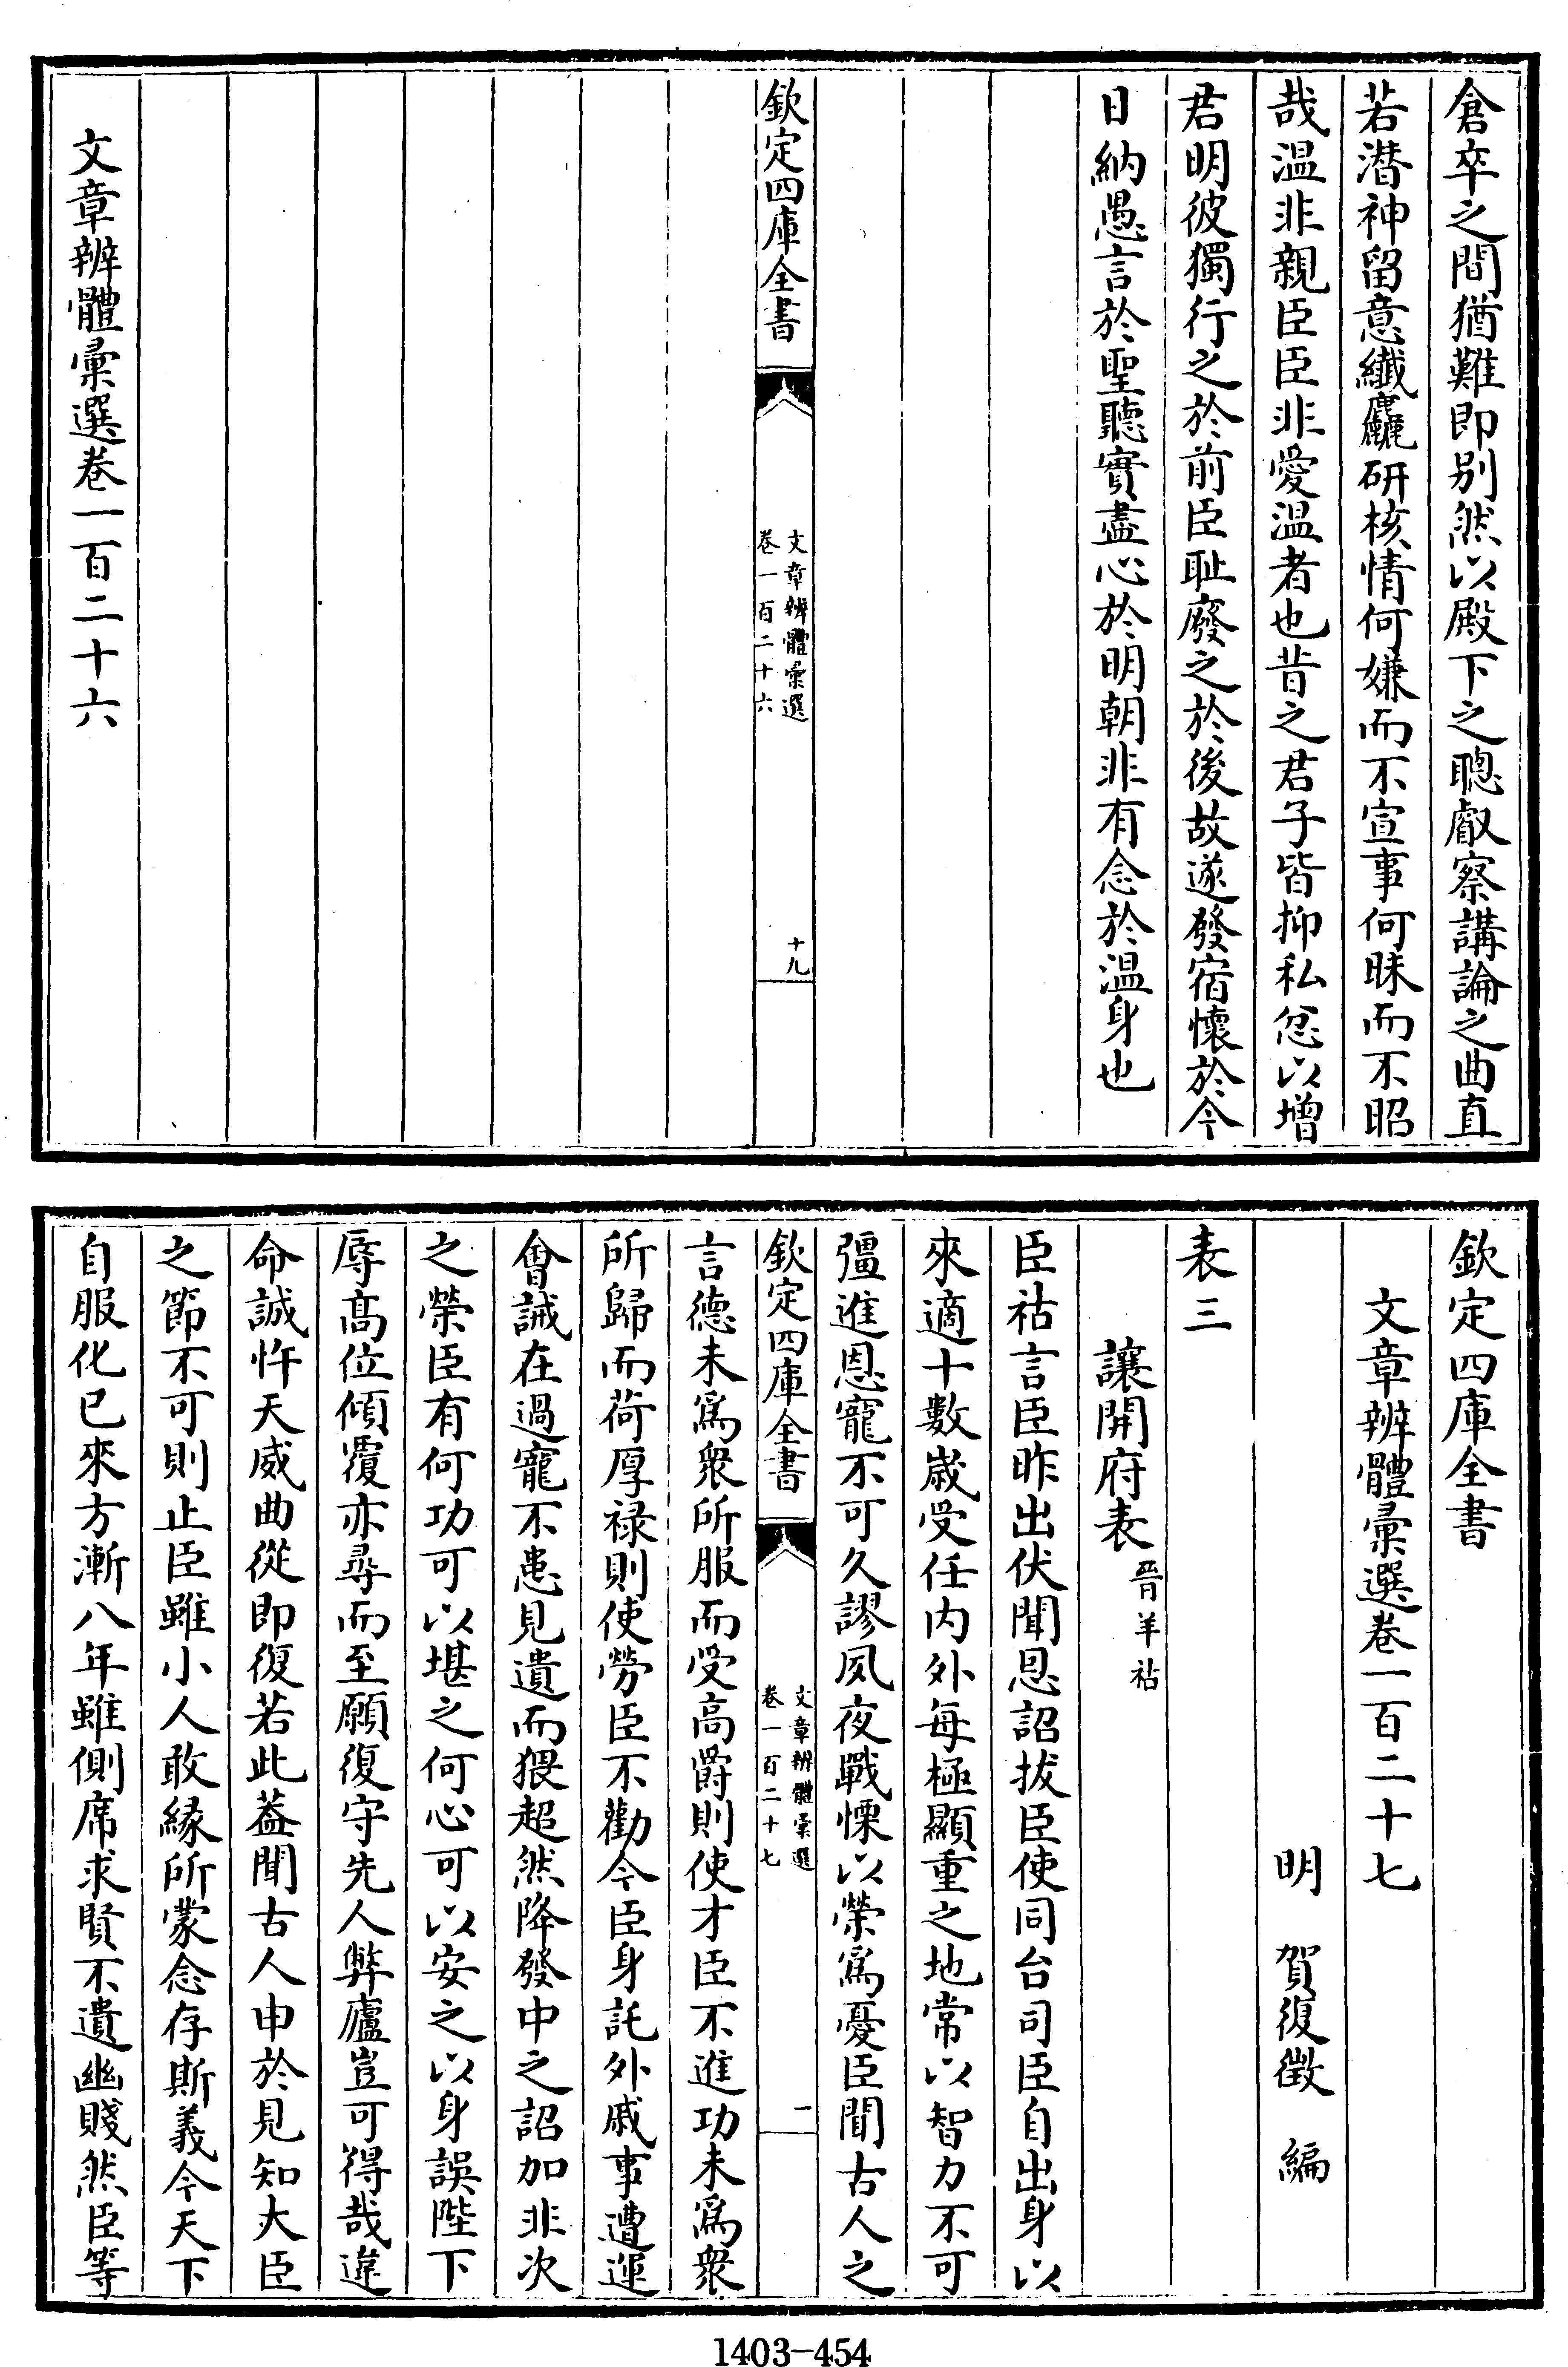 倉卒之間猶難即别然以殿下之聰叡察講論之曲直
若潛神留意纖麤研核情何嫌而不宣事何昧而不昭
哉温非親臣臣非愛温者也昔之君子皆抑私忿以增
君明彼獨行之於前臣耻廢之於後故遂發宿懷於今
日納愚言於聖聽實盡心於明朝非有念於温身也
欽定四庫全書
文章辨體彙選
卷一百二十六
十九
文章辨體彙選卷一百二十六
欽定四庫全書
文章辨體彙選卷一百二十七
明 賀復徵 編
表三
讓開府表 晉羊祜
臣祜言臣昨出伏聞恩詔拔臣使同台司臣自出身以
來適十數歲受任内外每極顯重之地常以智力不可
彊進恩寵不可久謬夙夜戰慄以榮爲憂臣聞古人之
欽定四庫全書
文章辨體彙選
卷一百二十七
一
言德未爲衆所服而受高爵則使才臣不進功未爲衆
所歸而荷厚禄則使勞臣不勸今臣身託外戚事遭運
會誡在過寵不患見遺而猥超然降發中之詔加非次
之榮臣有何功可以堪之何心可以安之以身誤陛下
辱髙位傾覆亦尋而至願復守先人弊廬豈可得哉違
命誠忤天威曲從即復若此葢聞古人申於見知大臣
之節不可則止臣雖小人敢縁所蒙念存斯義今天下
自服化已來方漸八年雖側席求賢不遺幽賤然臣等
1403-454